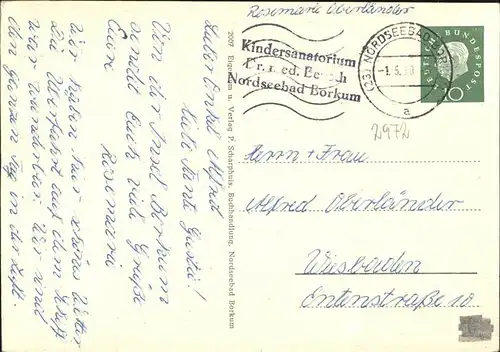 Rosemarie Oberländer
Kindersanatorium
Dr. med. Besch
Nordseebad Borkum
(23) NORDSEEBAD
-1.5.60
a
DEUTSCHE BUNDESPOST
10
2972
Lieber Onkel Alfred
liebe Tante Gustel!
Von der Insel Borkum
sendet Euch viele Grüße
Eure Rosemarie
Wir haben hier schönes Wetter
Die Überfahrt auf dem Schiff
war wunderbar. Wir sind
den ganzen Tag in der Luft.
2007 Eigentum u. Verlag P. Scharphuis, Buchhandlung, Nordseebad Borkum
Herrn + Frau
Alfred Oberländer
Wiesbaden
Entenstraße 10